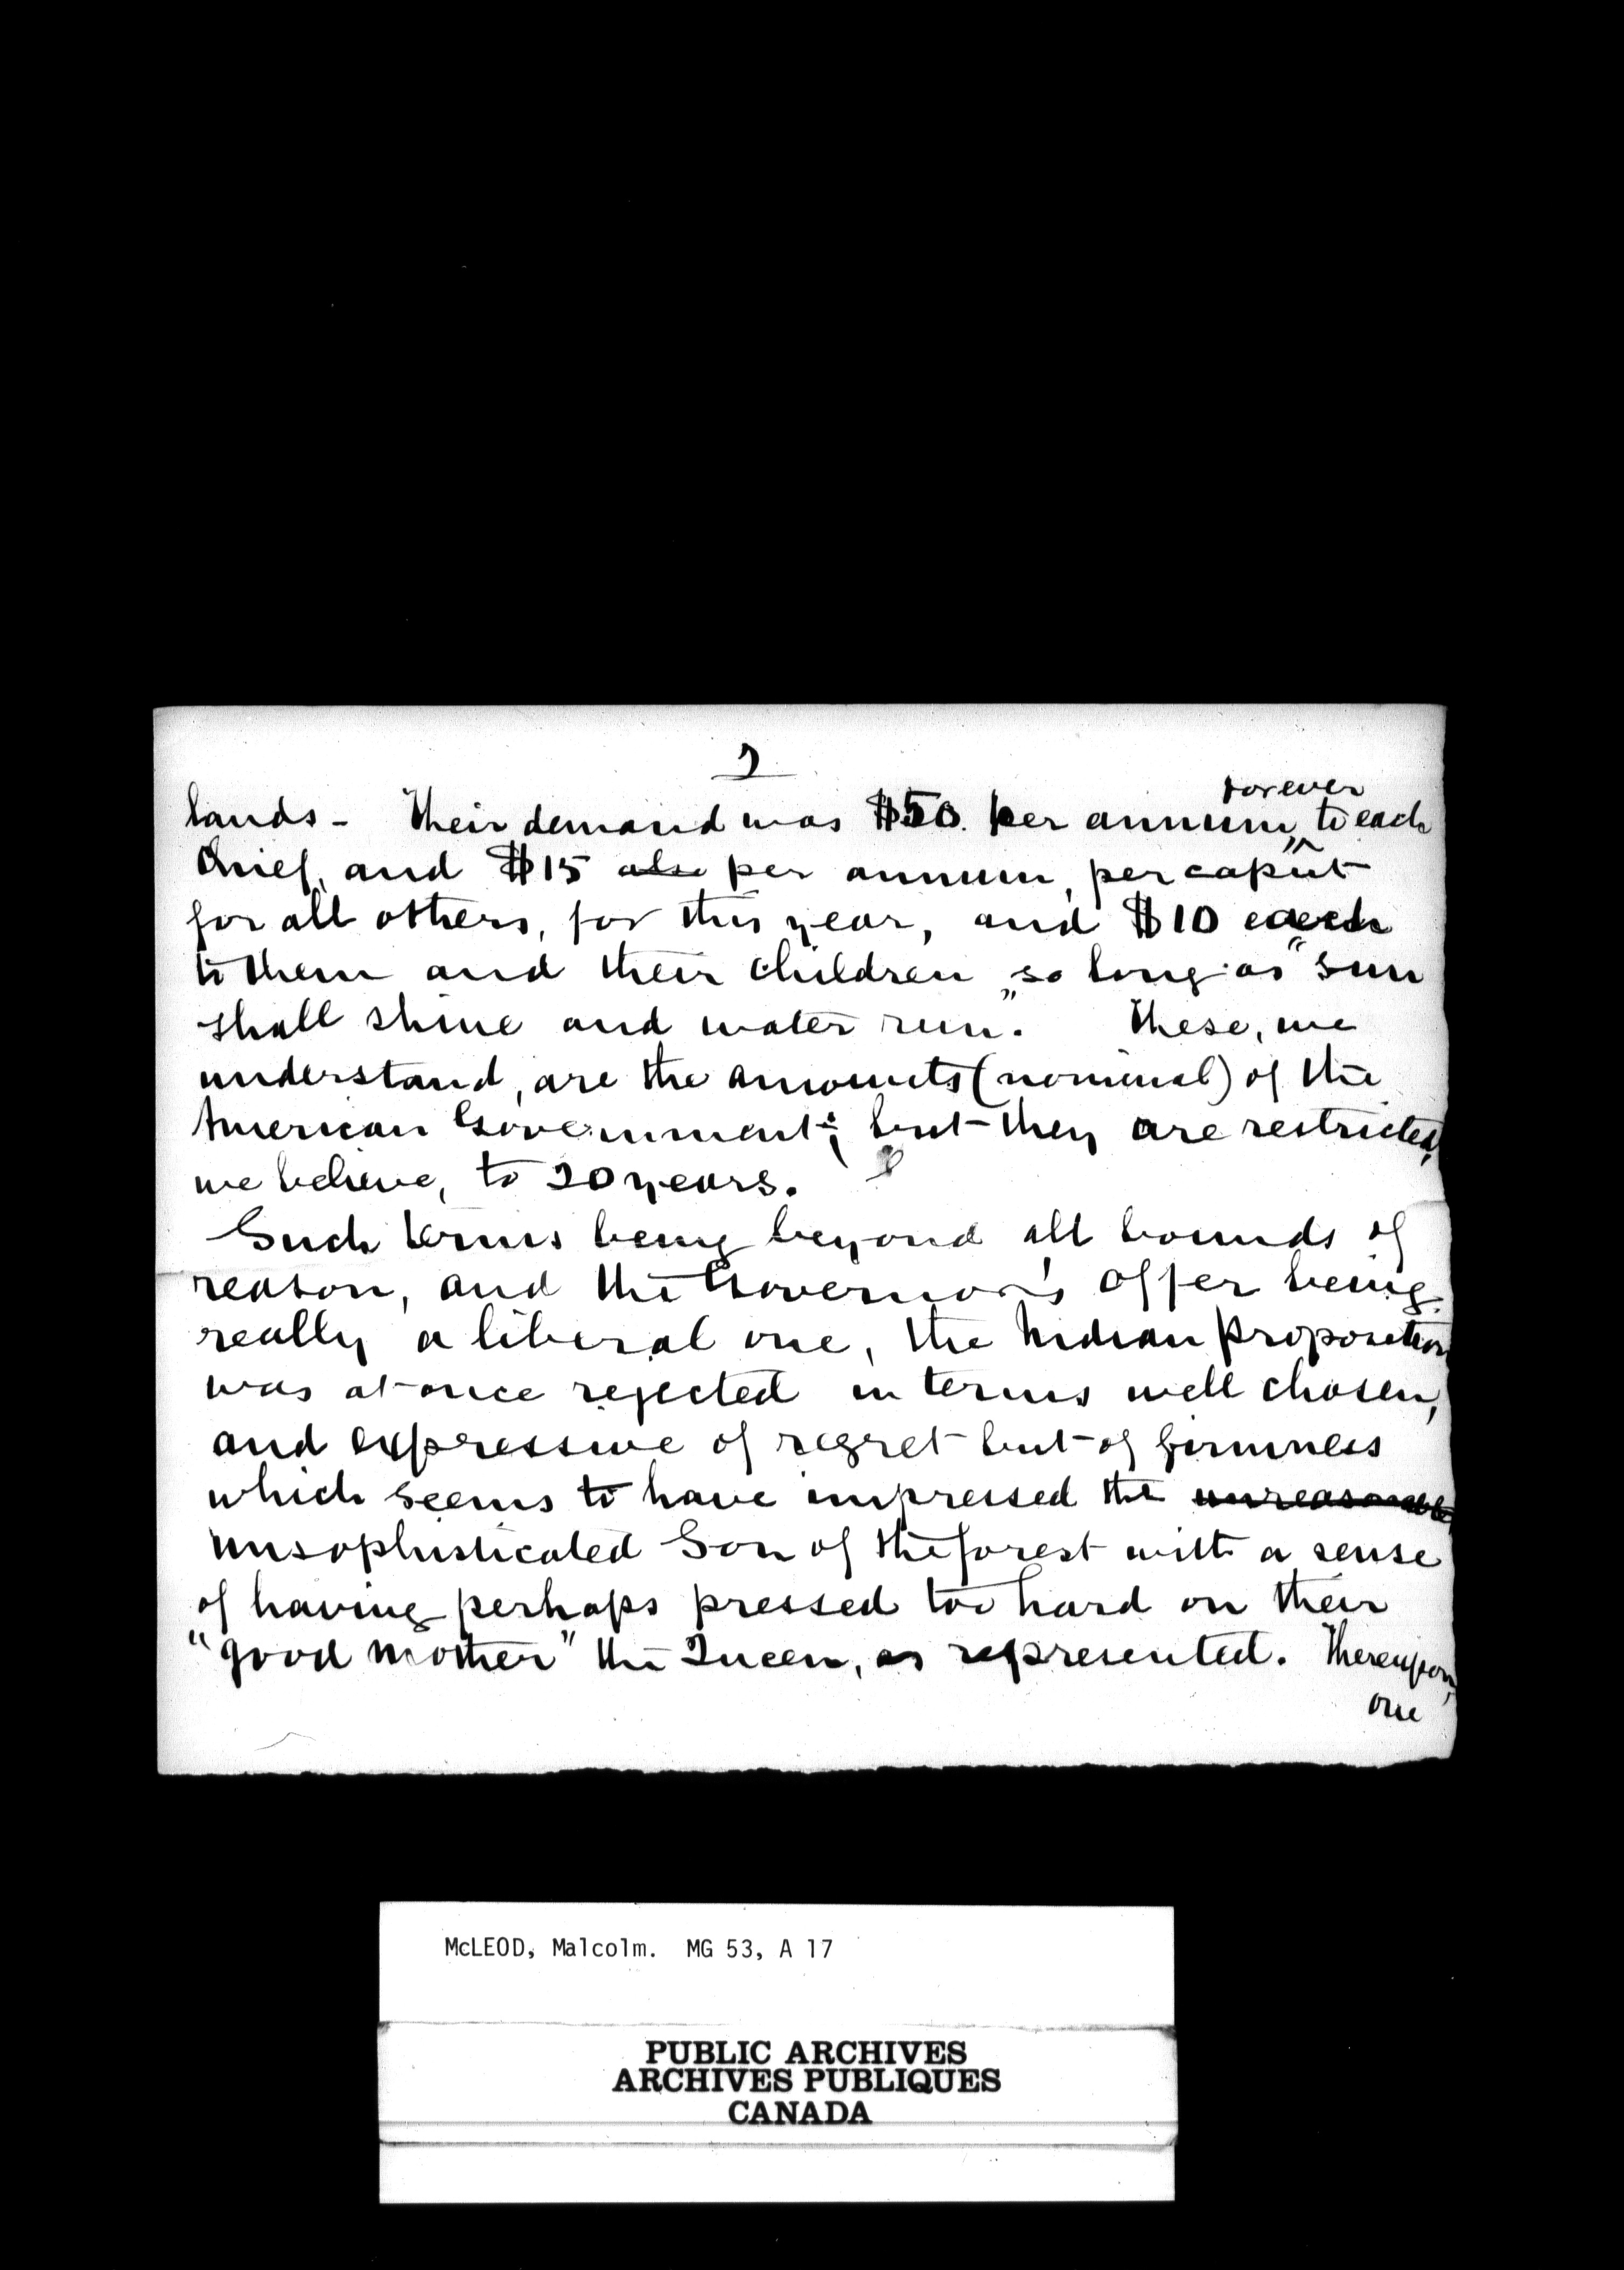 2
forever
lands - Their demand was $50. per annum, to each
Chief, and $15 also per annum, per caput
for all others, for this year, and $10 each
to them and their children "so long as "sun
shall shine and water run". These, we
understand, are the amounts (nominal) of the
American Government; but they are restricted,
we believe, to 20 years.
Such terms being beyond all bounds of
reason, and the Governor's offer being
really a liberal one, the Indian proposition
was at once rejected in terms well chosen,
and expressive of regret but of firmness
which seems to have impressed the unreasonable
unsophisticated Son of the forest with a sense
of having perhaps pressed too hard on their
"good mother" the Queen, as represented. Thereupon,
one
McLEOD, Malcolm. MG 53, A 17
PUBLIC ARCHIVES
ARCHIVES PUBLIQUES
CANADA